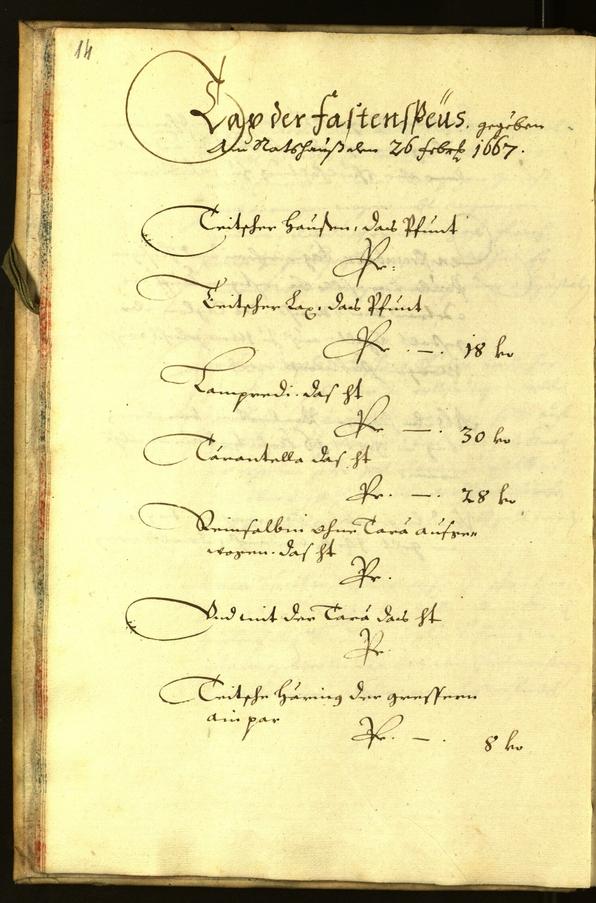 14
Tax der fastenspeüs. gegeben
Am Ratshauß den 26 febr: 1667.
Teitscher Hausen, das Pfunt
Pr:
Teitscher Lax, das Pfunt
Pr. — . 18 kr
Lampredi. das ht
Pr. — . 30 kr
Tarantella das ht
Pr. — . 28 kr
Reinfalbin ohne Tara aufge-
wogen. das ht
Pr.
Und mit der Tara das ht
Pr
Teitsche Häring der gressern
ain par
Pr. — . 8 kr